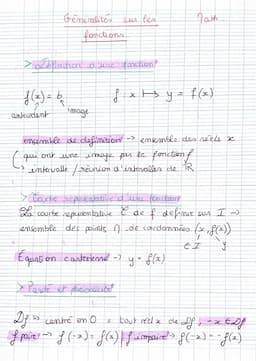 Généralités sur les Math.
fonctions
> Définition d'une fonction
f(x) = b f : x ↦ y = f(x)
antécédent image
ensemble de définition → ensemble des réels x
( qui ont une image par la fonction f
↳ intervalle / réunion d'intervalles de ℝ
> Courbe représentative d'une fonction
La courbe représentative C de f définie sur I →
ensemble des points M de coordonnées (x, f(x))
∈ I y
Équation cartésienne → y = f(x)
> Parité et
Df centré en 0 = tout réel x de Df, -x ∈ Df
f paire → f(-x) = f(x) / f impaire → f(-x) = -f(x)